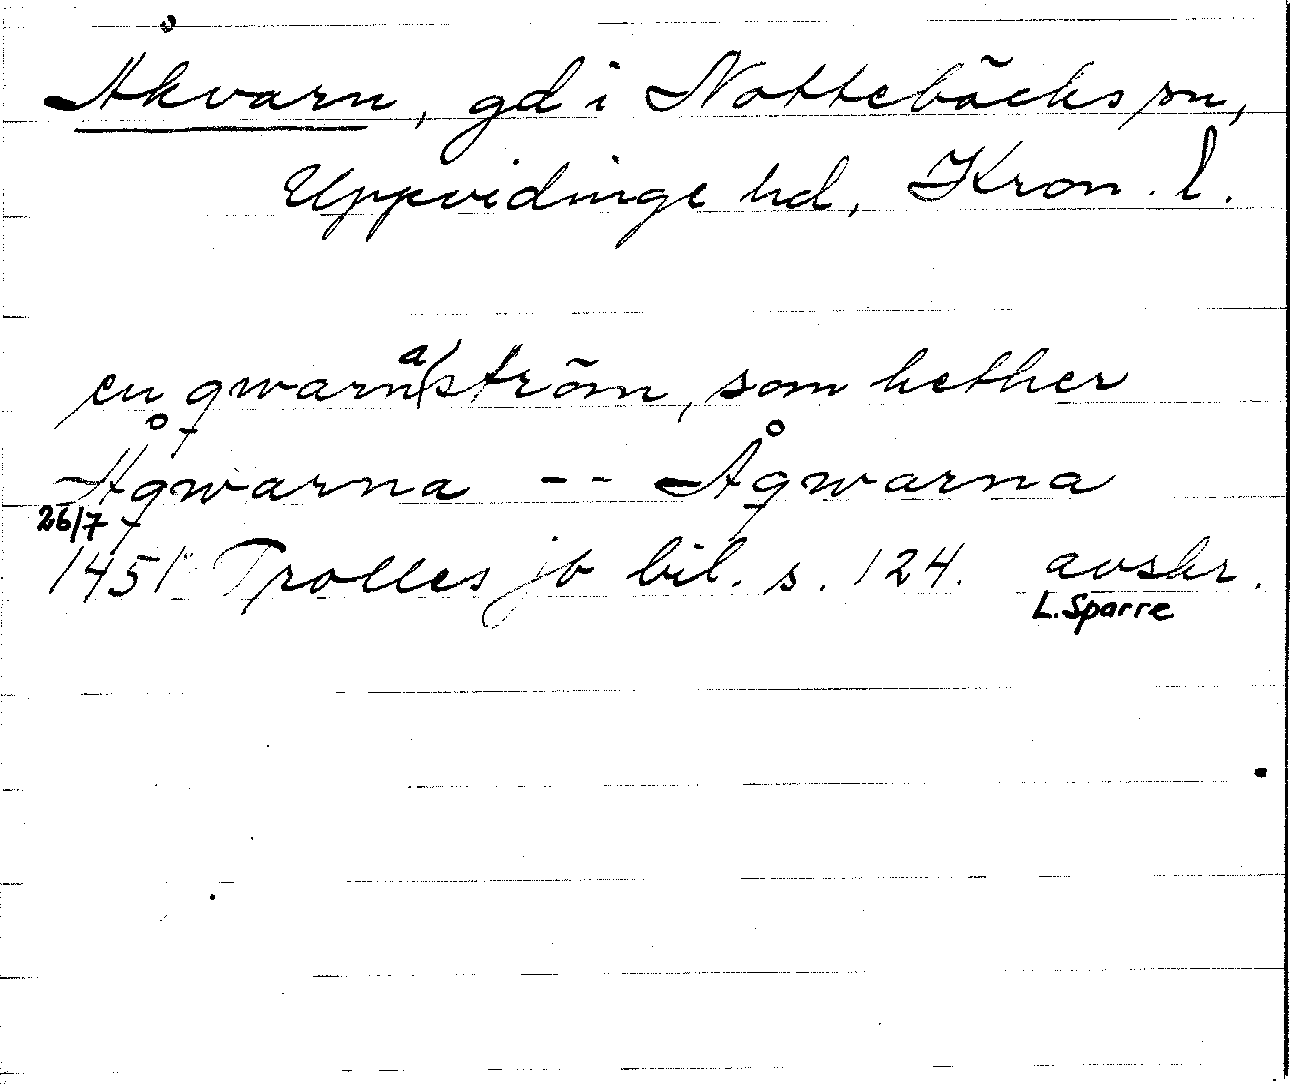 Åkvarn, gd i Nottebäcks sn,
Uppvidinge hd, Kron. l.
en qwarna ström, som hether
Åqwarna -- Åqwarna
26/7
1451 Trolles jb bil. s. 124. avskr.
L. Sparre